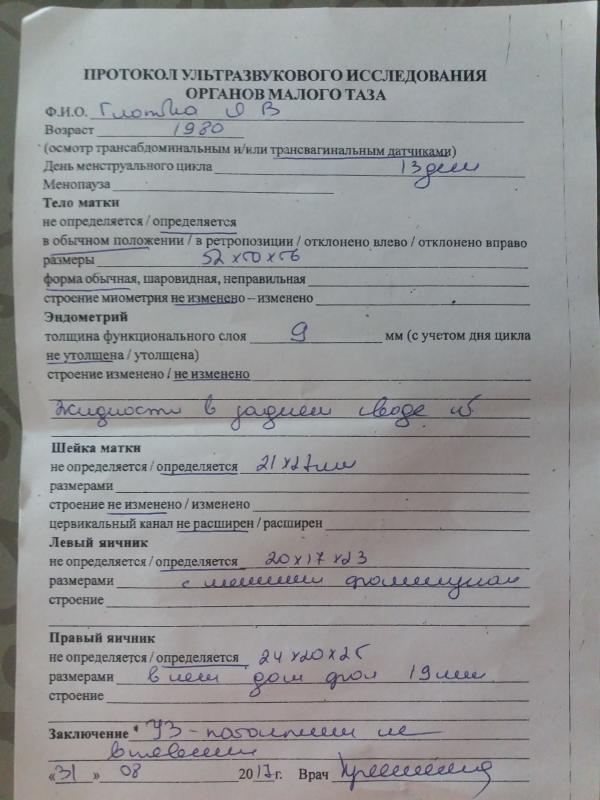 ПРОТОКОЛ УЛЬТРАЗВУКОВОГО ИССЛЕДОВАНИЯ
ОРГАНОВ МАЛОГО ТАЗА
Ф.И.О. В
Возраст 1980
(осмотр трансабдоминальным и/или трансвагинальным датчиками)
День менструального цикла 13 день
Менопауза
Тело матки
не определяется / определяется
в обычном положении / в ретропозиции / отклонено влево / отклонено вправо
размеры 52 х 50 х 56
форма обычная, шаровидная, неправильная
строение миометрия не изменено – изменено
Эндометрий
толщина функционального слоя 9 мм (с учетом дня цикла
не утолщена / утолщена)
строение изменено / не изменено
жидкости в заднем своде
Шейка матки
не определяется / определяется 21 х 27 мм
размерами
строение не изменено / изменено
цервикальный канал не расширен / расширен
Левый яичник
не определяется / определяется 20 х 17 х 23
размерами с мелкими фолликулами
строение
Правый яичник
не определяется / определяется 24 х 20 х 25
размерами в нем дом фол 19 мм
строение
Заключение УЗ - патологии не
выявлено
«31» 08 2017 г. Врач